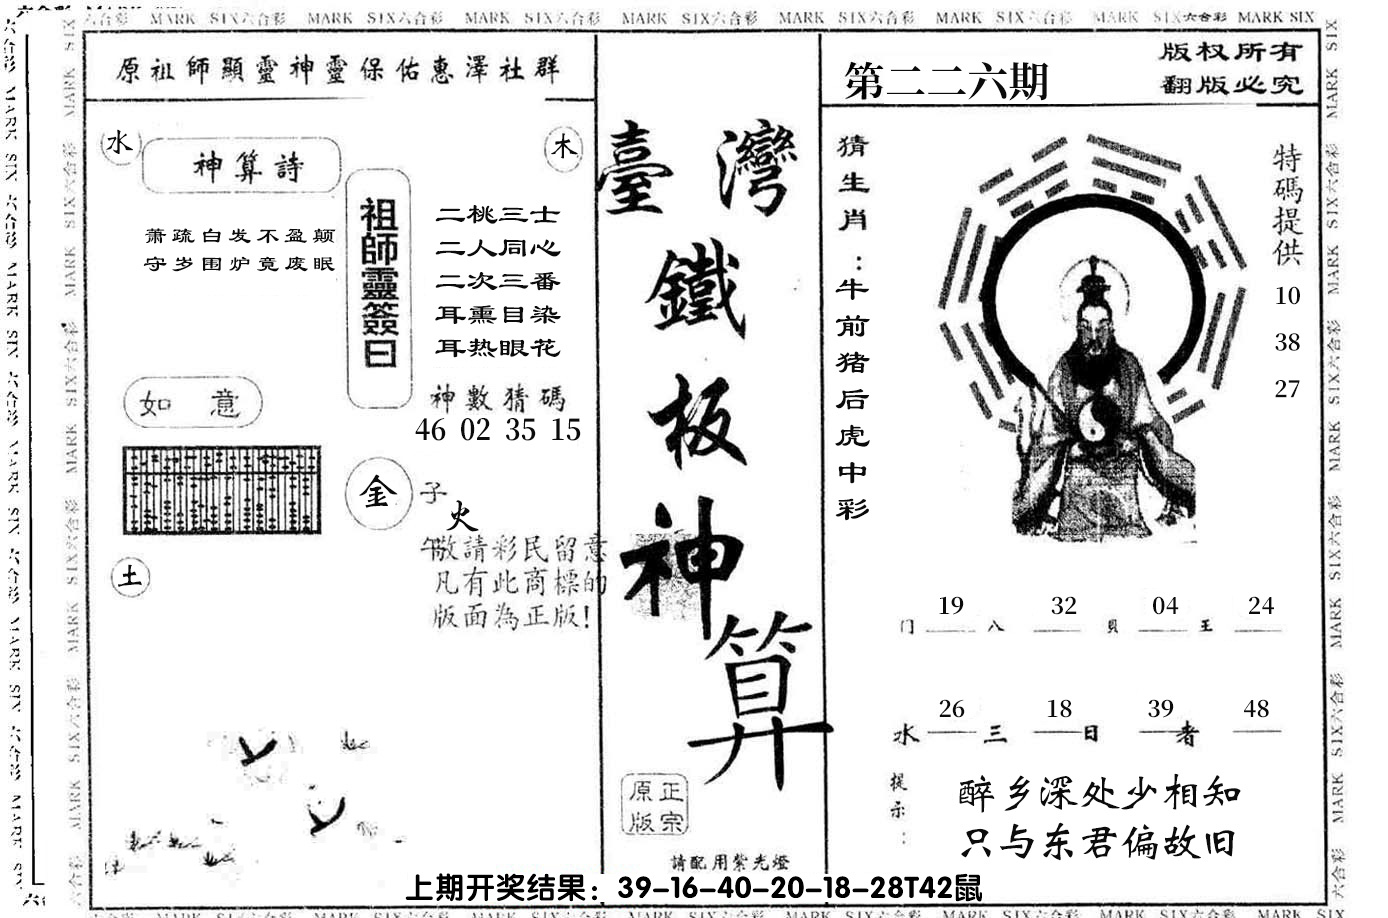 MARK SIX六合彩 MARK SIX六合彩 MARK SIX六合彩 MARK SIX六合彩 MARK SIX六合彩 MARK SIX六合彩 MARK SIX六合彩 MARK SIX六合彩 MARK SIX
原祖師顯靈神靈保佑惠澤社群
水
神算詩
木
萧疏白发不盈颠
守岁围炉竟废眠
祖師靈簽曰
二桃三士
二人同心
二次三番
耳熏目染
耳热眼花
如意
神數猜碼
46 02 35 15
金
子
火
午
敬請彩民留意
凡有此商標的
版面為正版!
土
臺灣
鐵
板
神
算
正宗
原版
請配用紫光燈
第二二六期
版权所有
翻版必究
猜生肖:牛前猪后虎中彩
特碼提供
10
38
27
19 32 04 24
门 八 貝 王
26 18 39 48
水 三 日 者
提示:
醉乡深处少相知
只与东君偏故旧
上期开奖结果：39-16-40-20-18-28T42鼠